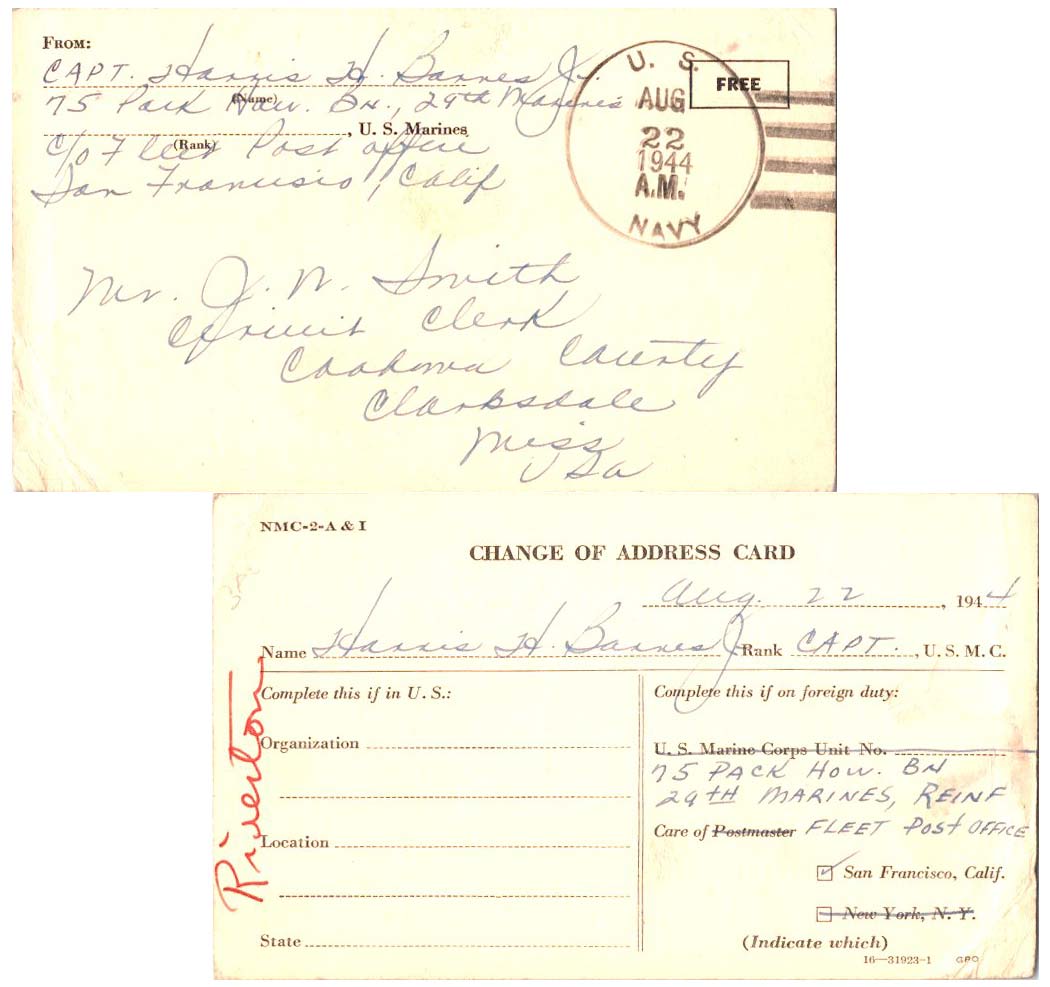 FROM:
CAPT. Harris H. Barnes Jr.
(Name)
75 Pack How. BN., 29th Marines
, U. S. Marines
(Rank)
C/o Fleet Post office
San Francisco, Calif
U. S.
AUG
22
1944
A.M.
NAVY
FREE
Mr. J. N. Smith
Circuit Clerk
Coahoma County
Clarksdale
Miss
USa
NMC-2-A & I
CHANGE OF ADDRESS CARD
Aug. 22, 1944
Name Harris H. Barnes Jr Rank CAPT., U. S. M. C.
Riverton
Complete this if in U. S.:
Organization
Location
State
Complete this if on foreign duty:
U. S. Marine Corps Unit No.
75 PACK HOW. BN
29TH MARINES, REINF
Care of Postmaster FLEET POST OFFICE
San Francisco, Calif.
New York, N. Y.
(Indicate which)
16—31923-1 GPO